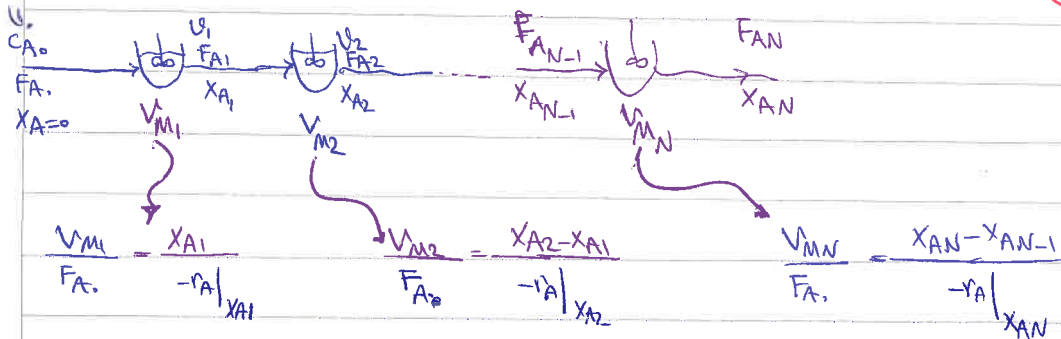 υ.
C_A.
F_A.
X_A=0
υ_1
F_A1
X_A1
V_M1
υ_2
F_A2
X_A2
V_M2
F_AN-1
X_AN-1
V_MN
F_AN
X_AN
V_M1/F_A. = X_A1/-r_A|X_A1
V_M2/F_A. = X_A2-X_A1/-r_A|X_A2
V_MN/F_A. = X_AN-X_AN-1/-r_A|X_AN